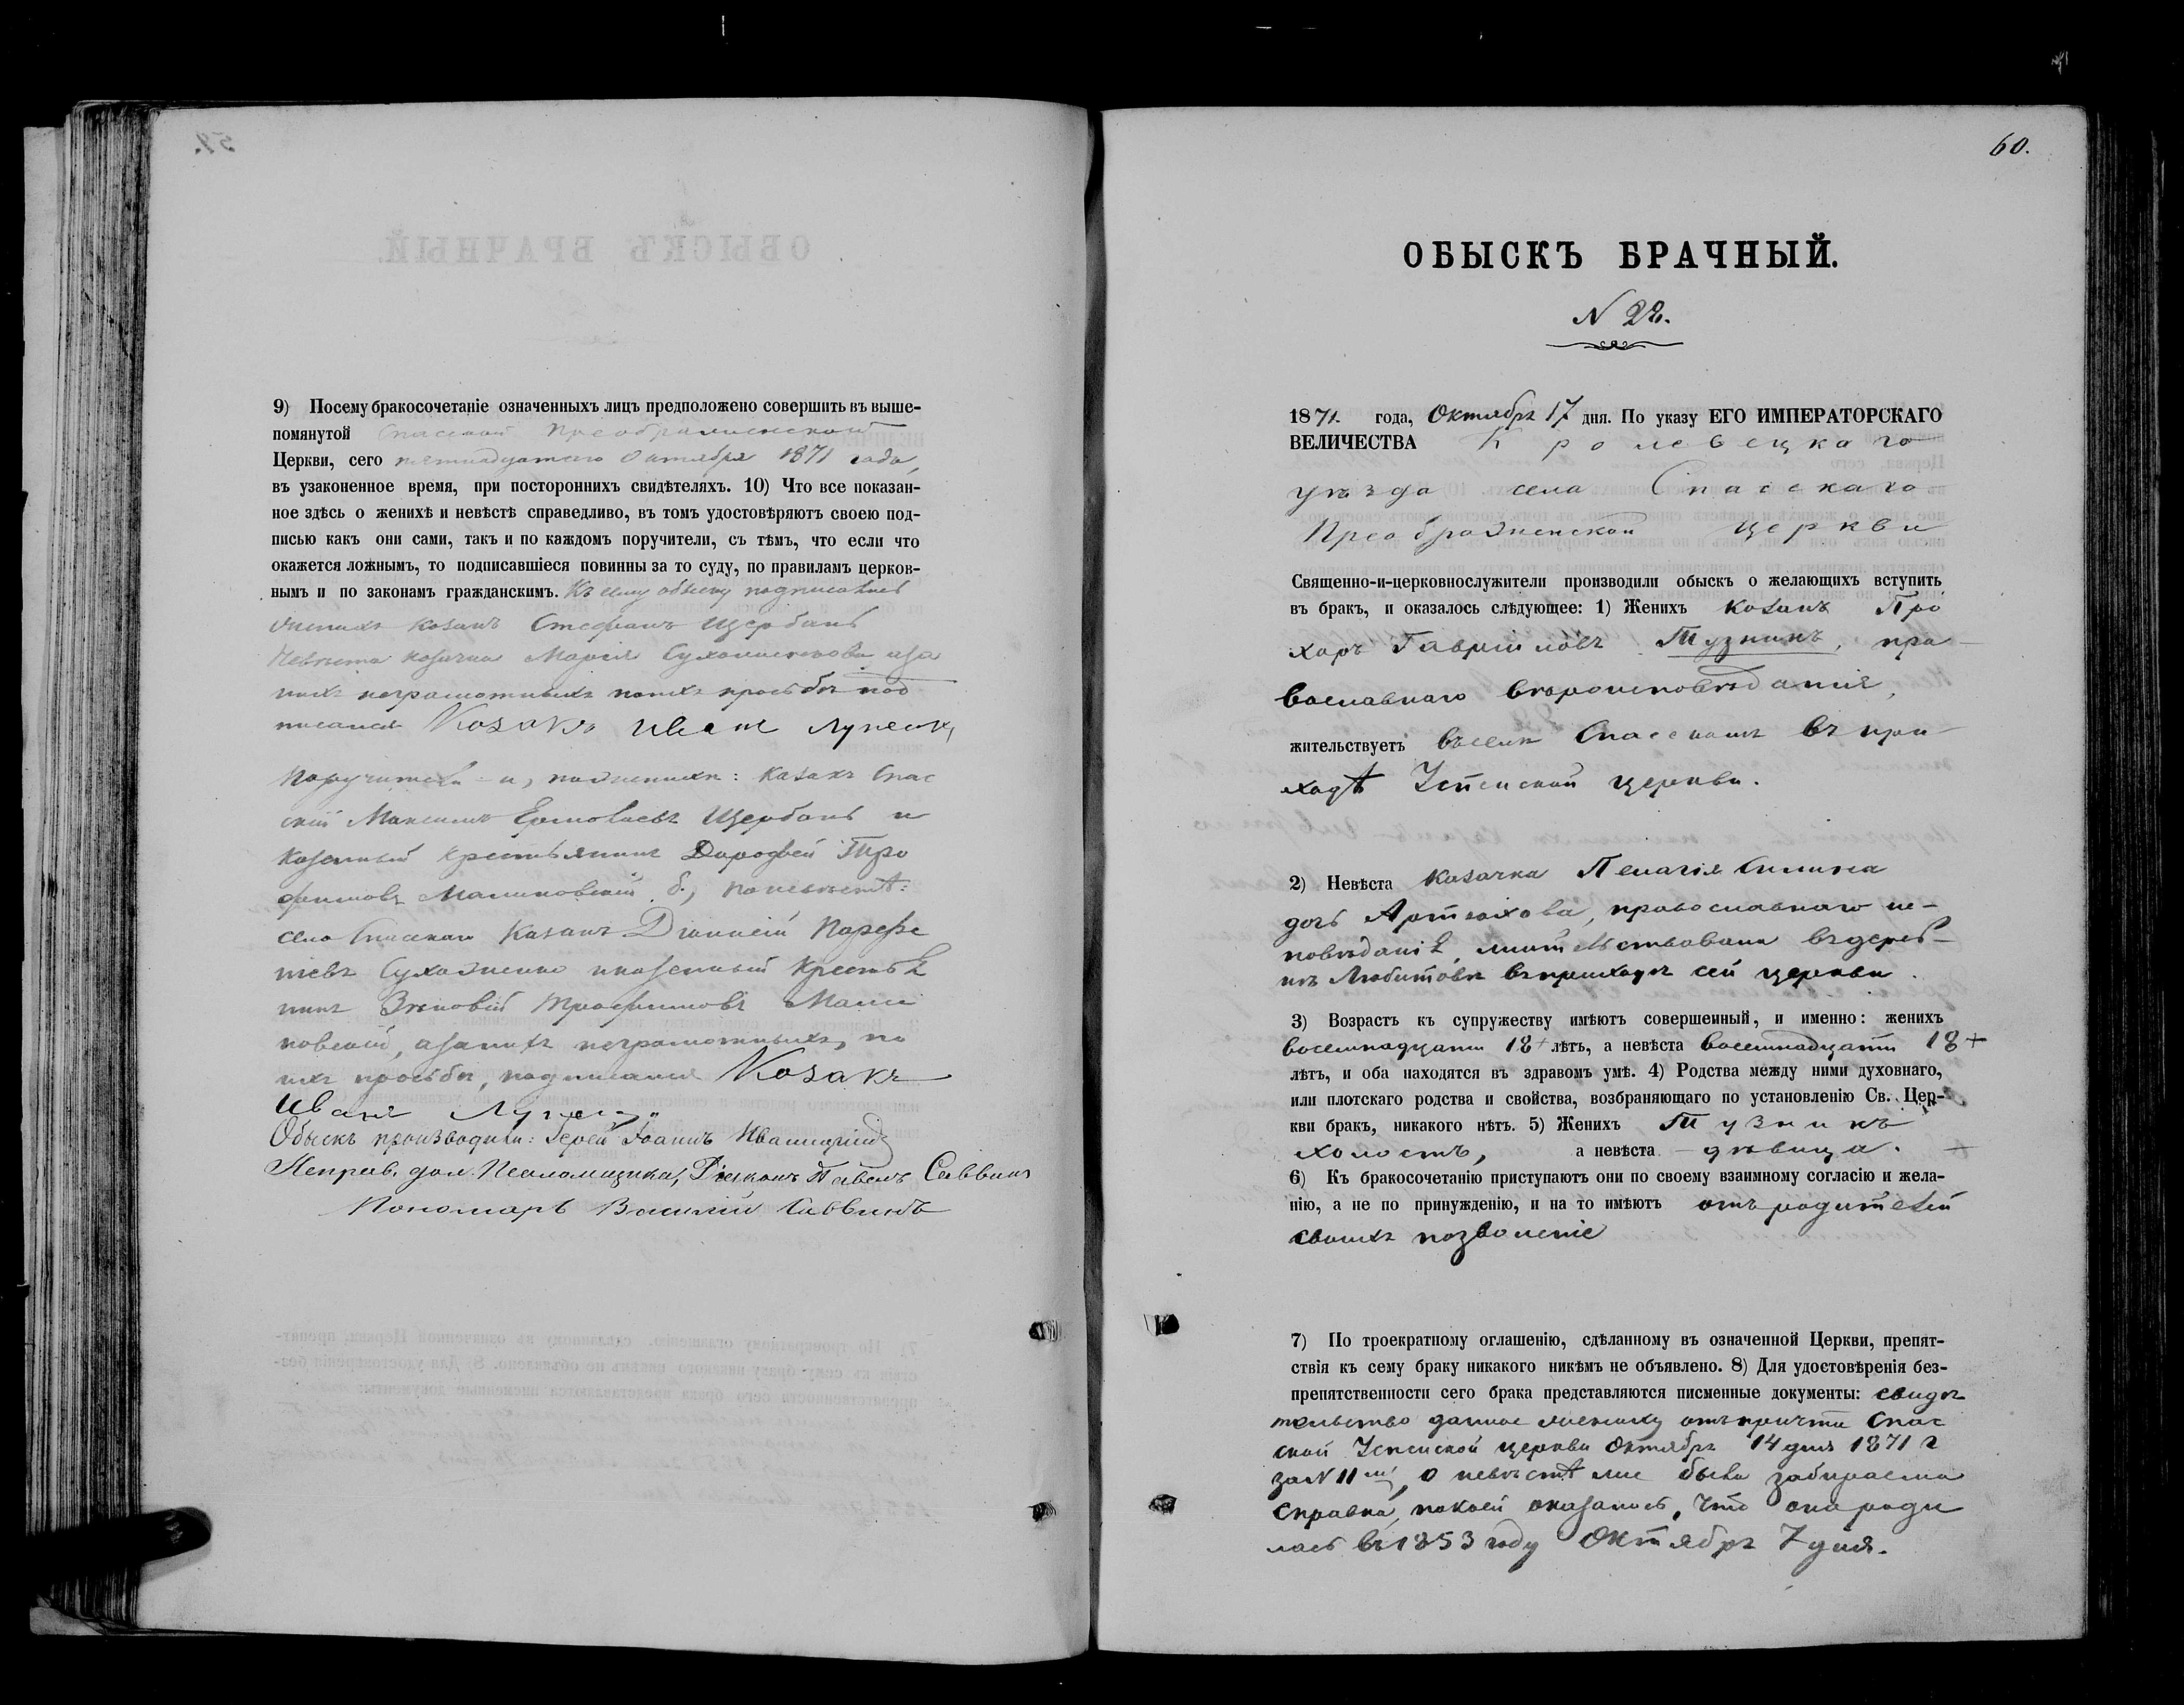 9) Посему бракосочетаніе означенныхъ лицъ предположено совершить въ выше-
помянутой Спасской Преображенской
Церкви, сего пятнадцатаго Октября 1871 года,
въ узаконенное время, при постороннихъ свидѣтеляхъ. 10) Что все показан-
ное здѣсь о женихѣ и невѣстѣ справедливо, въ томъ удостовѣряютъ своею под-
писью какъ они сами, такъ и по каждомъ поручители, съ тѣмъ, что если что
окажется ложнымъ, то подписавшіеся повинны за то суду, по правиламъ церков-
нымъ и по законамъ гражданскимъ. Къ сему обыску подписались
женихъ козакъ Стефанъ Щербань
Невѣста козачка Марія аза
нихъ неграмотныхъ поихъ прозьбѣ под
писался Козакъ Иванъ
Поручители – а, поженихѣ: казакъ Спас
скій Максимъ Ермолаевъ Щербань и
Казенный крестьянинъ Дорофей Тро
фимовъ Малиновскій б., по невѣстѣ:
села Спасскаго Казакъ Діонисій
Сухо иказенный крестья
нинъ Зѣновій Трофимовъ Мали
новскій, азанихъ неграмотныхъ, по
ихъ прозьбѣ, подписался Козакъ
Иванъ
Обыскъ производили: Іерей Іоаннъ
Исправ. дол. Псаломщика, Діаконъ Павелъ Саввинъ
Пономарь Василій Саввинъ
60.
ОБЫСКЪ БРАЧНЫЙ.
N 22.
1871 года, Октября 17 дня. По указу ЕГО ИМПЕРАТОРСКАГО
ВЕЛИЧЕСТВА Кролевецкаго
уѣзда села Спасскаго
Преображенской церкви
Священно-и-церковнослужители производили обыскъ о желающихъ вступить
въ бракъ, и оказалось слѣдующее: 1) Женихъ козакъ Про
хоръ Гавріиловъ Тузникъ, пра-
вославнаго вѣроисповѣданія,
жительствуетъ въселѣ Спасскомъ въ при-
ходѣ Успенской церкви.
2) Невѣста козачка Пелагія Силина
дочь Артюхова, православнаго ис-
повѣданія, жительствовала въдерев-
нѣ Любитовкѣ въприходѣ сей церкви.
3) Возрастъ къ супружеству имѣютъ совершенный, и именно: женихъ
восемнадцати 18+ лѣтъ, а невѣста восемнадцати 18+
лѣтъ, и оба находятся въ здравомъ умѣ. 4) Родства между ними духовнаго,
или плотскаго родства и свойства, возбраняющаго по установленію Св. Цер-
кви бракъ, никакого нѣтъ. 5) Женихъ Тузникъ
холостъ, а невѣста – дѣвица.
6) Къ бракосочетанію приступаютъ они по своему взаимному согласію и жела-
нію, а не по принужденію, и на то имѣютъ отъ родителей
своихъ позволеніе
7) По троекратному оглашенію, сдѣланному въ означенной Церкви, препят-
ствія къ сему браку никакого никѣмъ не объявлено. 8) Для удостовѣренія без-
препятственности сего брака представляются писменные документы: свидѣ
тельство данное жениху отъпричта Спас
ской Успенской церкви Октября 14 дня 1871 г
заN 11мъ, о невѣстѣ же была забираема
справка, покоей оказалось, что она роди
лась въ 1853 году Октября 7 дня.